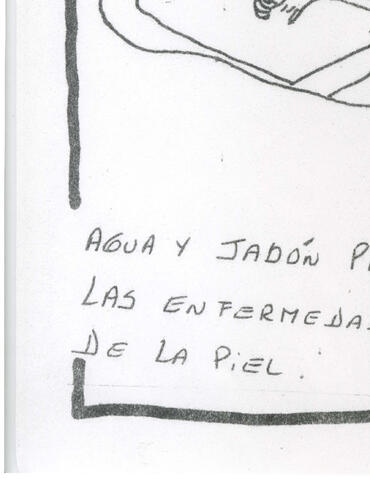 AGUA Y JADÓN P
LAS ENFERMEDA
DE LA PIEL.